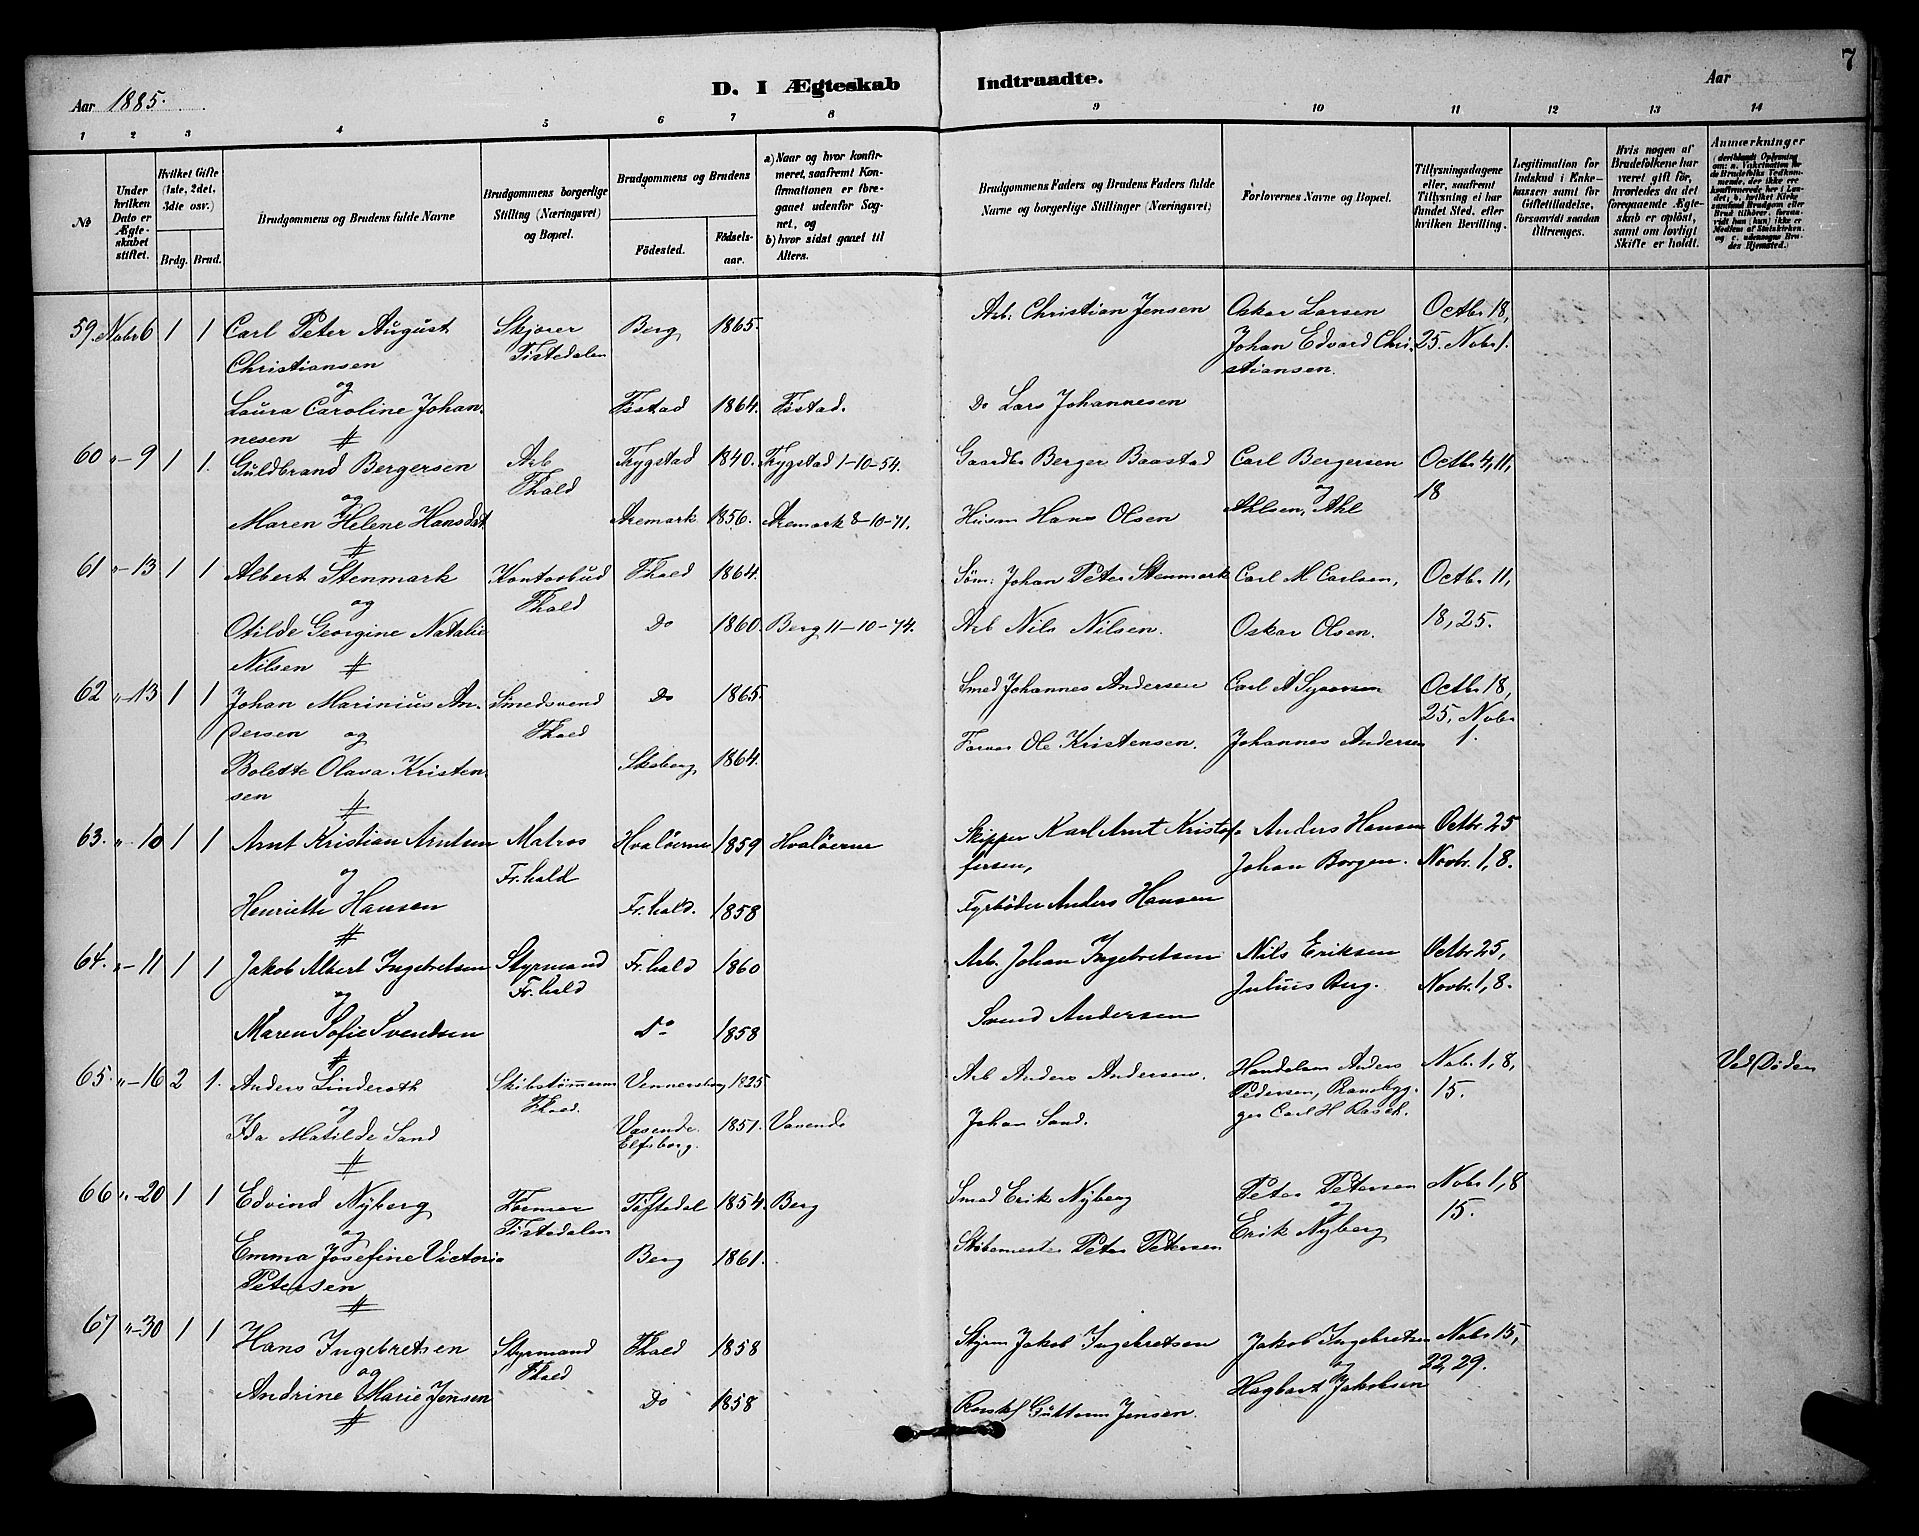 7
Aar 1885. D. I Ægteskab Indtraadte. Aar
1 2 3 4 5 6 7 8 9 10 11 12 13 14
№
Under hvilken Dato er Ægteskabet stiftet.
Hvilket Gifte (1ste, 2det, 3die osv.)
Brdg. Brud.
Brudgommens og Brudens fulde Navne
Brudgommens borgerlige Stilling (Næringsvei) og Bopæl.
Brudgommens og Brudens
Fødested. Fødselsaar.
a) Naar og hvor konfirmeret, saafremt Konfirmationen er foregaaet udenfor Sognet, og
b) hvor sidst gaaet til Alters.
Brudgommens Faders og Brudens Faders fulde Navne og borgerlige Stillinger (Næringsvei)
Forlovernes Navne og Bopæl.
Tillysningsdagene eller, saafremt Tillysning ei har fundet Sted, efter hvilken Bevilling.
Legitimation for Indskud i Enkekassen samt for Giftetilladelse, forsaavidt saadan tiltrænges.
Hvis nogen af Brudefolkene har været gift før, hvorledes da det foregaaende Ægteskab er opløst, samt om lovligt Skifte er holdt.
Anmærkninger
59. Nobr 6 1 1 Carl Peter August Skjører Berg 1865. Arb. Christian Jensen Oskar Larsen Octbr 18,
Christiansen Tistedalen Johan Edvard Chri- 25. Nobr 1.
og stiansen.
Laura Caroline Johan- Idstad 1864. Idstad. Do Lars Johannesen
nesen #
60 "-9 1 1. Guldbrand Bergersen Arb Trygstad 1840. Trygstad 1-10-54. Gaardbr Berger Baastad Carl Bergersen Octbr 4, 11,
og Fhald og 18
Maren Helene Hansdat Aremark 1856. Aremark 8-10-71. Husm Hans Olsen Ahlsen, Ahl
#
61 "-13 1 1 Albert Stenmark Kontorbud Fhald 1864. Søm: Johan Peter Stenmark Carl M Carlsen, Octbr 11,
og Fhald
Otilde Georgine Natalie Do 1860. Berg 11-10-74. Arb Nils Nilsen. Oskar Olsen. 18, 25.
Nilsen #
62 "-13 1 1 Johan Marinius An- Smedsvend Do 1865. Smed Johannes Andersen Carl A Octbr 18,
dersen og Fhald 25, Nobr
Bolette Olava Kristen- Skeberg 1864. Farver Ole Kristensen. Johannes Andersen 1.
sen #
63. "-10 1 1 Arnt Kristian Arntsen Matros Hvaløerne 1859 Hvaløerne Skipper Karl Arnt Kristof- Anders Hansen Octbr. 25
og Fr.hald fersen, Johan Borgen. Novbr. 1, 8.
Henriette Hansen Fr.hald. 1858 Fyrbøder Anders Hansen
#
64. "-11 1 1 Jakob Albert Ingebretsen Styrmand Fr.hald 1860 Arb. Johan Ingebretsen Nils Eriksen Octbr 25,
og Fr.hald Julius Berg. Novbr. 1, 8.
Maren Sofie Svendsen Do 1858 Svend Andersen
#
65. "-16 2 1. Anders Linderoth Skibstømmerm Vennersborg 1825 Arb Anders Andersen. Handelsm Anders Nobr. 1, 8, Ved Døden
og Fhald. Pedersen, 15.
Ida Matilde Sand Vasende 1851. Vasende Johan Sand. ger Carl H Rasch.
# Elfsborg.
66 "-20 1 1 Edvind Nÿberg Former Tistedal 1854. Berg Smed Erik Nÿberg Peter Petersen Nobr 1, 8
og Tistedalen og 15.
Emma Josefine Victoria Berg 1861. Støbemester Peter Petersen Erik Nyberg
Petersen
#
67 "-30 1 1 Hans Ingebretsen Styrmand Fhald 1858 Styrm Jakob Ingebretsen Jakob Ingebretsen Nobr 15,
og Fhald og 22, 29.
Andrine Marie Jensen Do 1858 Guttorm Jensen. Hagbart Jakobsen
#